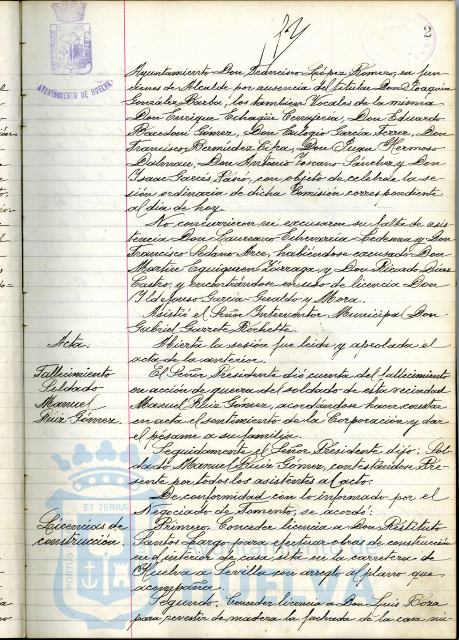 2
AYUNTAMIENTO DE HUELVA
Ayuntamiento Don Francisco López Romero, en fun-
ciones de Alcalde por ausencia del titular Don Joaquin
González Barba, los también Vocales de la misma
Don Enrique Echagüe Cerrajería, Don Eduardo
Bacedoni Gómez, Don Eulogio García Ferrer, Don
Francisco Bermúdez Don Juan Hermoso
Dalmau, Don Antonio Toscano Sánchez y Don
Isaac Garcés con objeto de celebrar la se-
sión ordinaria de dicha Comisión correspondiente
al dia de hoy.
No concurrieron ni excusaron su falta de asis-
tencia Don Laureano Echevarría Ledesma y Don
Francisco Sedano Arce, habiéndose excusado Don
Martín Eguiguren Zárraga, y Don Ricardo Díaz
Castro, y encontrándose en uso de licencia Don
Ildefonso García Geraldo y Mora.
Asistió el Señor Interventor Municipal Don
Gabriel Garrote Rochette.
Acta.
Abierta la sesión fue leida y aprobada el
acta de la anterior.
Fallecimiento
Soldado
Manuel
Ruiz Gómez.
El Señor Presidente dió cuenta del fallecimiento
en acción de guerra del soldado de esta vecindad
Manuel Ruiz Gómez, acordándose hacer constar
en acta el sentimiento de la Corporación y dar
el pésame a su familia.
Seguidamente el Señor Presidente dijo: Sol-
dado Manuel Ruiz Gómez, contestándose Pre-
sente por todos los asistentes al acto.
De conformidad con lo informado por el
Negociado de Fomento, se acordó:
Licencias de
construcción.
Primero. Conceder licencia a Don Restituto
Santos Largo para efectuar obras de construcción
en el interior de casa sita en la carretera de
Huelva a Sevilla con arreglo al plano que
acompaña.
Segundo. Conceder licencia a Don Luis Roza
para revestir de madera la fachada de la casa nú-
ET TERRÆ
HUELVA